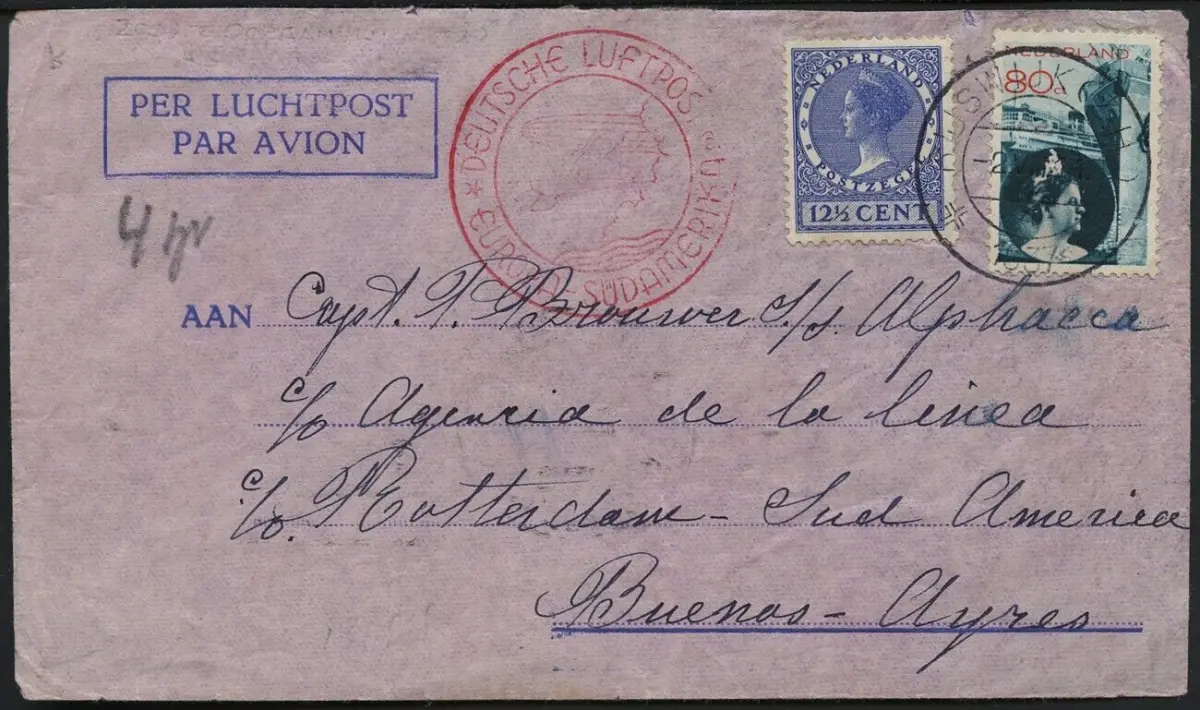 PER LUCHTPOST
PAR AVION
* DEUTSCHE LUFTPOST *
EUROPA-SÜDAMERIKA
NEDERLAND
POSTZEGEL
12½ CENT
NEDERLAND
80 c
4 gr
AAN Capt. T. Brouwer s/s. Alphacca
c/o Agencia de la linea
c/o. Rotterdam - Sud America
Buenos - Ayres